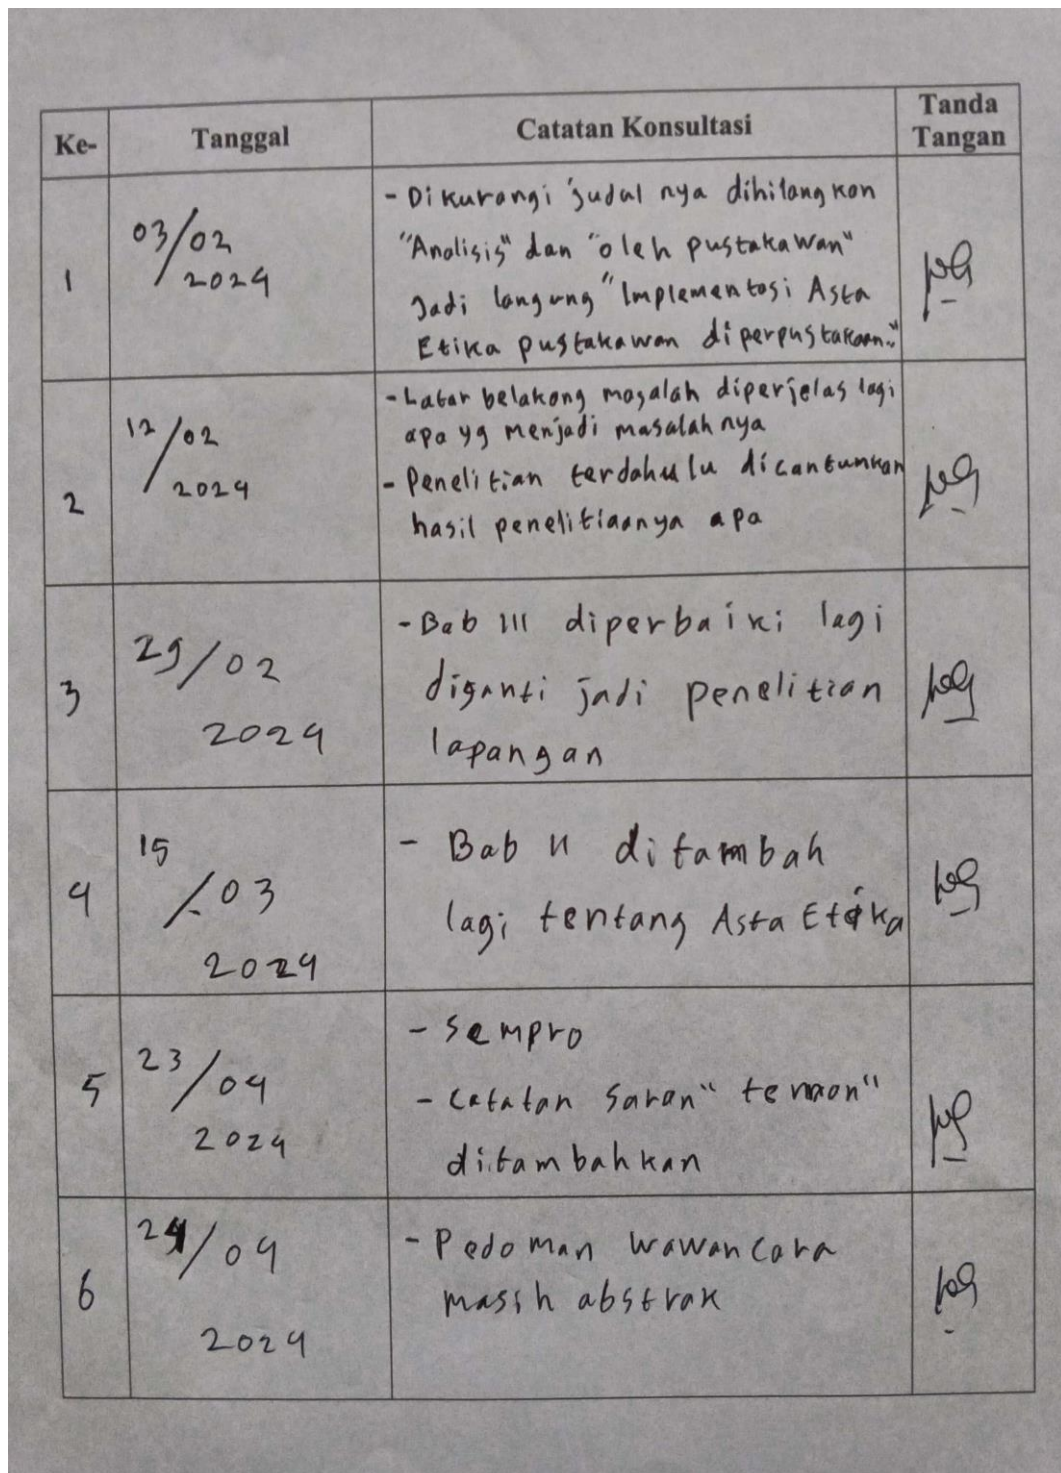 Ke- Tanggal Catatan Konsultasi Tanda Tangan
1
03/02
2024
- Dikurangi judul nya dihilangkan
"Analisis" dan "oleh pustakawan"
Jadi langung "Implementasi Asta
Etika pustakawan diperpustakaan."
2
12/02
2024
- Latar belakang masalah diperjelas lagi
apa yg menjadi masalah nya
- Penelitian terdahulu dicantumkan
hasil penelitiaanya apa
3
29/02
2024
- Bab III diperbaiki lagi
diganti jadi penelitian
lapangan
4
15/03
2024
- Bab II ditambah
lagi tentang Asta Etika
5
23/04
2024
- Sempro
- Catatan Saran"
ditambahkan
6
24/04
2024
- Pedoman wawancara
masih abstrak